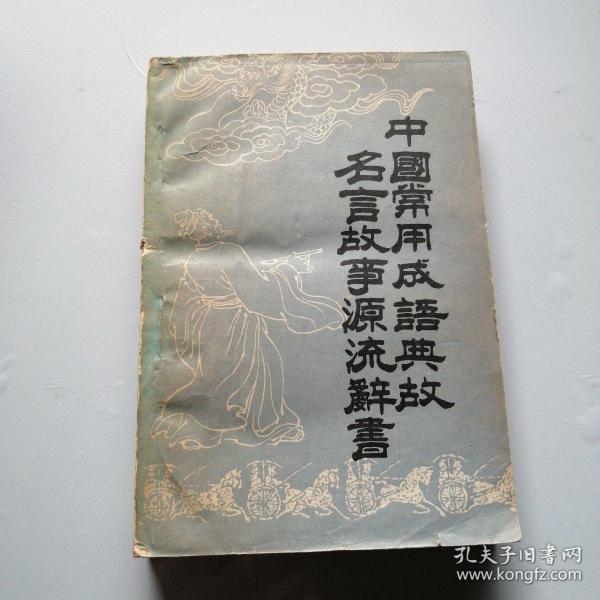 中國常用成語典故
名言故事源流辭書
孔夫子旧书网
www.kongfz.com